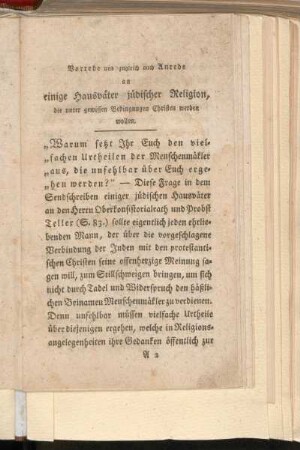 Vorrede und zugleich auch Anrede
an
einige Hausväter jüdischer Religion,
die unter gewissen Bedingungen Christen werden
wollen.
„Warum setzt Ihr Euch den viel-
„fachen Urtheilen der Menschenmäkler
„aus, die unfehlbar über Euch erge-
„hen werden?“ — Diese Frage in dem
Sendschreiben einiger jüdischen Hausväter
an den Herrn Oberkonsistorialrath und Probst
Teller (S. 83.) sollte eigentlich jeden ehrlie-
benden Mann, der über die vorgeschlagene
Verbindung der Juden mit den protestanti-
schen Christen seine offenherzige Meinung sa-
gen will, zum Stillschweigen bringen, um sich
nicht durch Tadel und Widerspruch den häßli-
chen Beinamen Menschenmäkler zu verdienen.
Denn unfehlbar müssen vielfache Urtheile
über diejenigen ergehen, welche in Religions-
angelegenheiten ihre Gedanken öffentlich zur
A 2